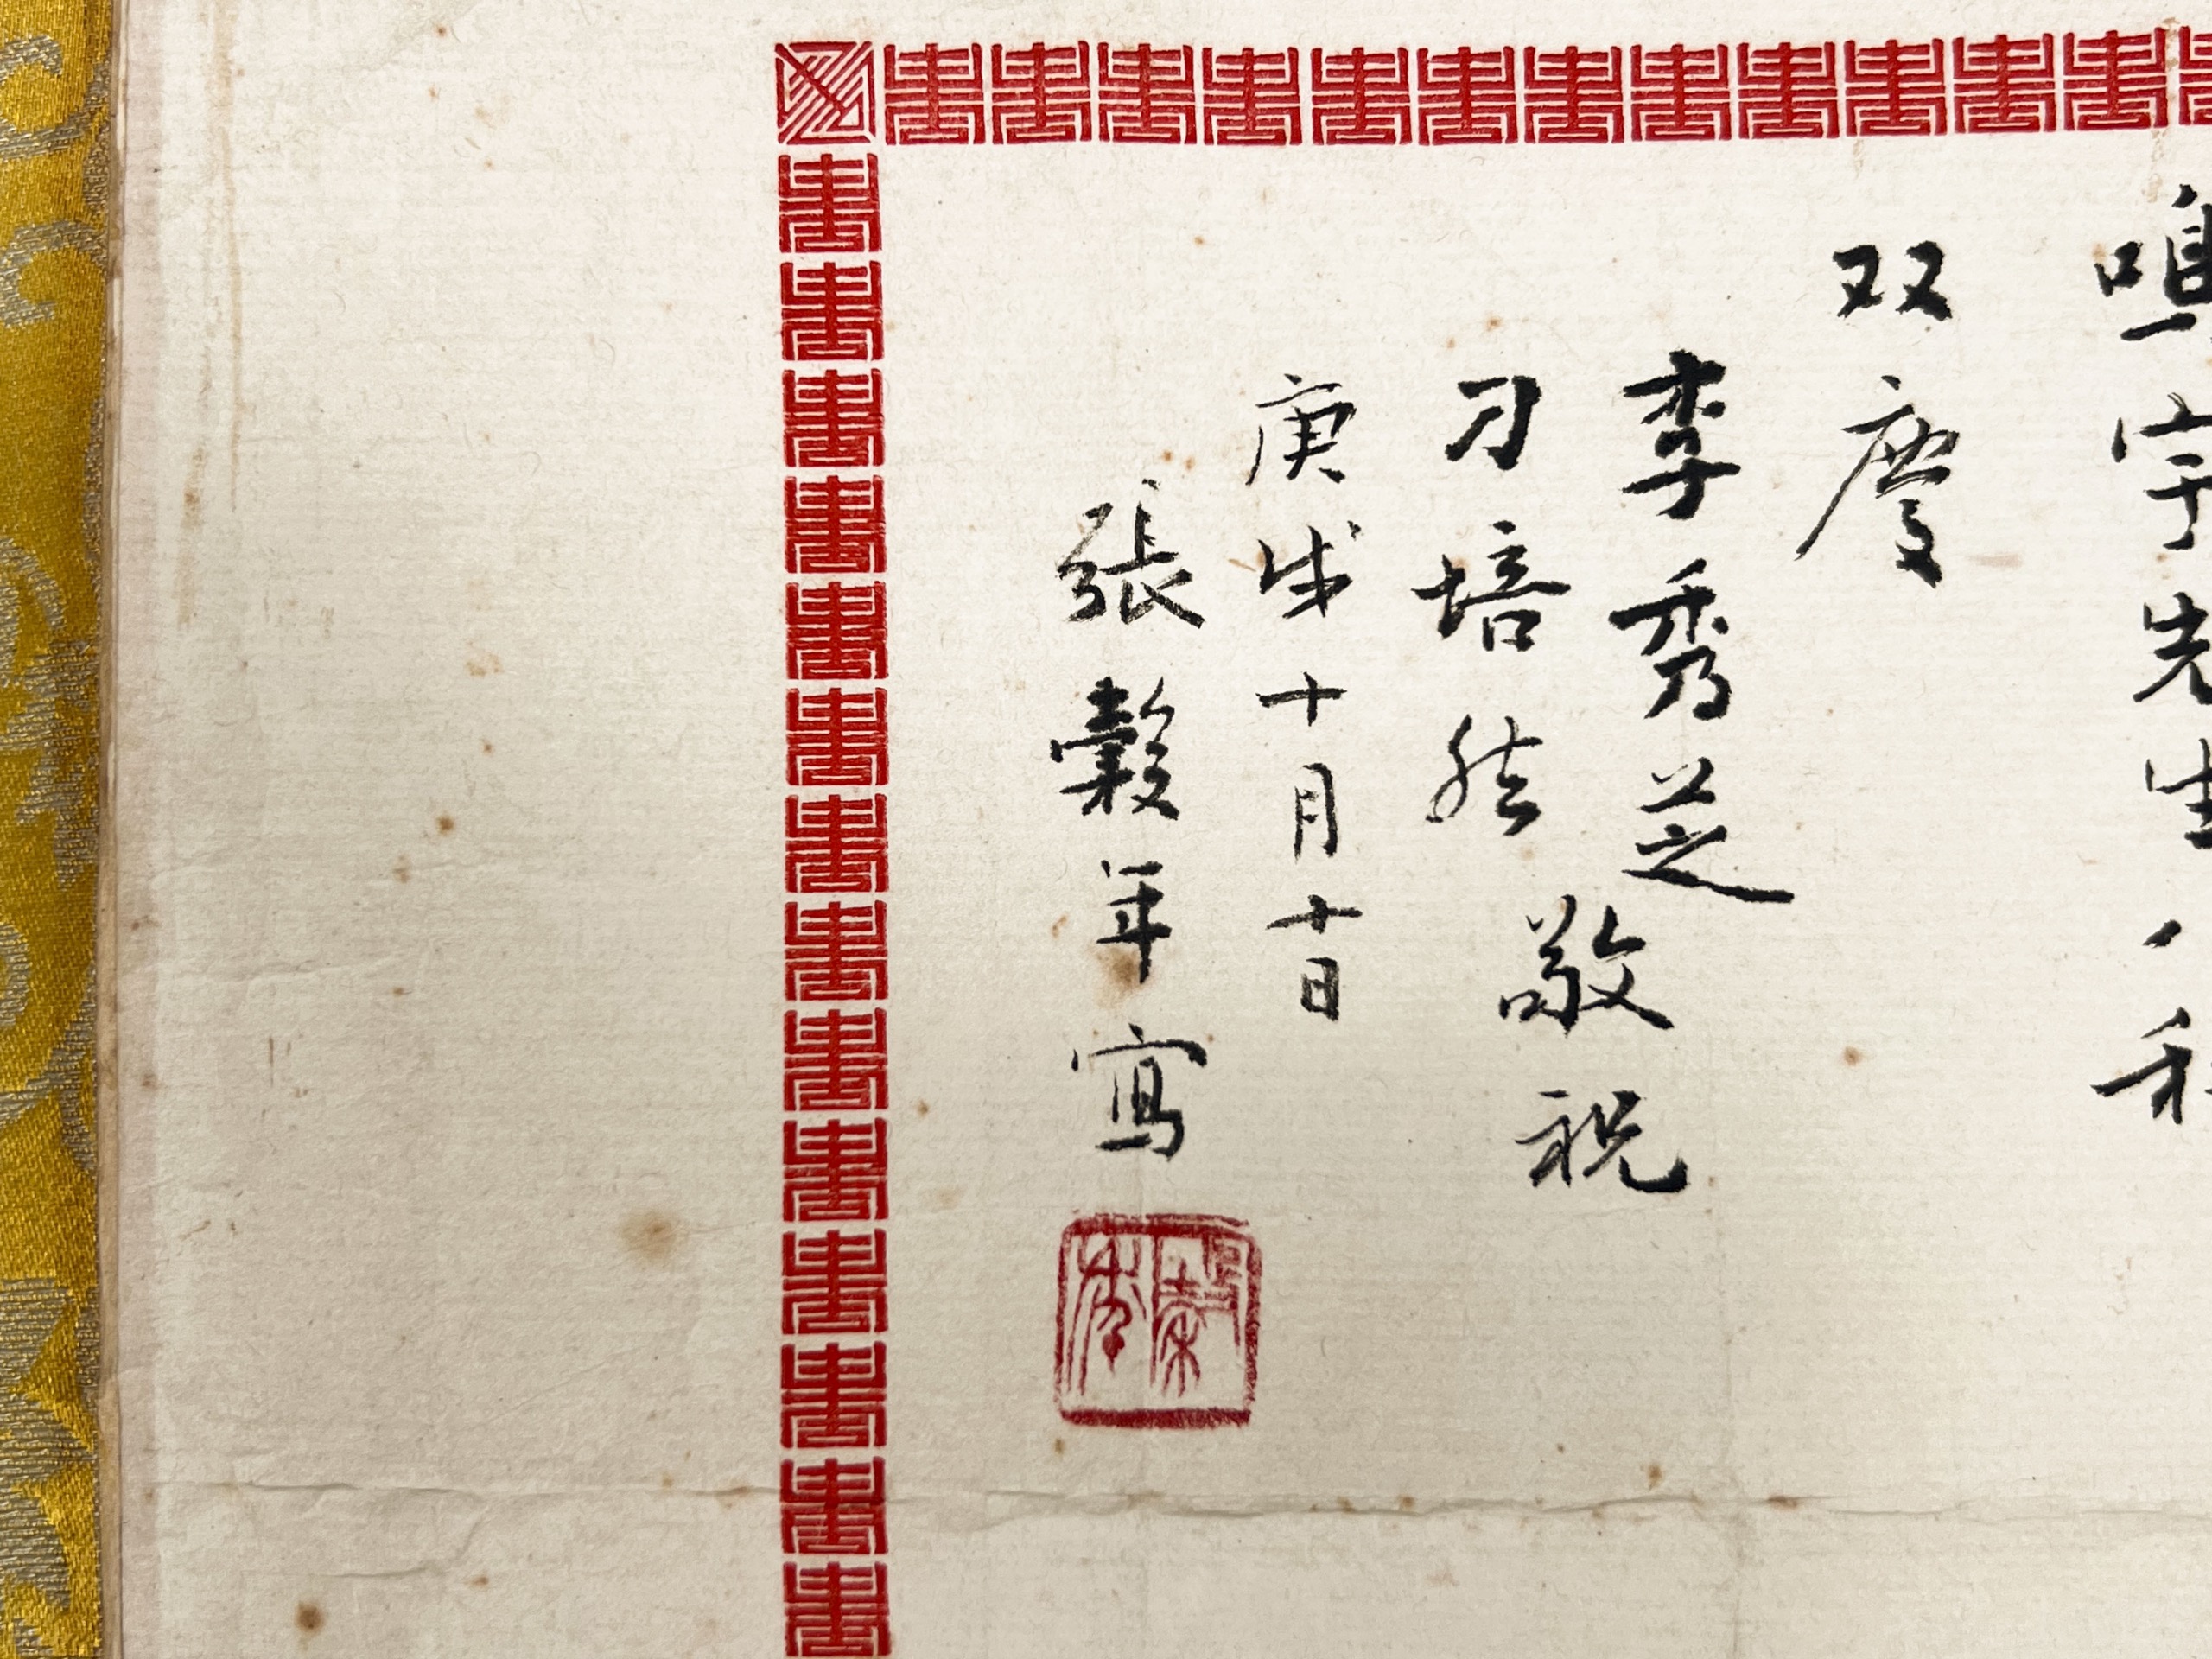 鳴宇先生八秩
双慶
李秀芝
刁培然
敬祝
庚戌十月十日
張穀年寫
穀年